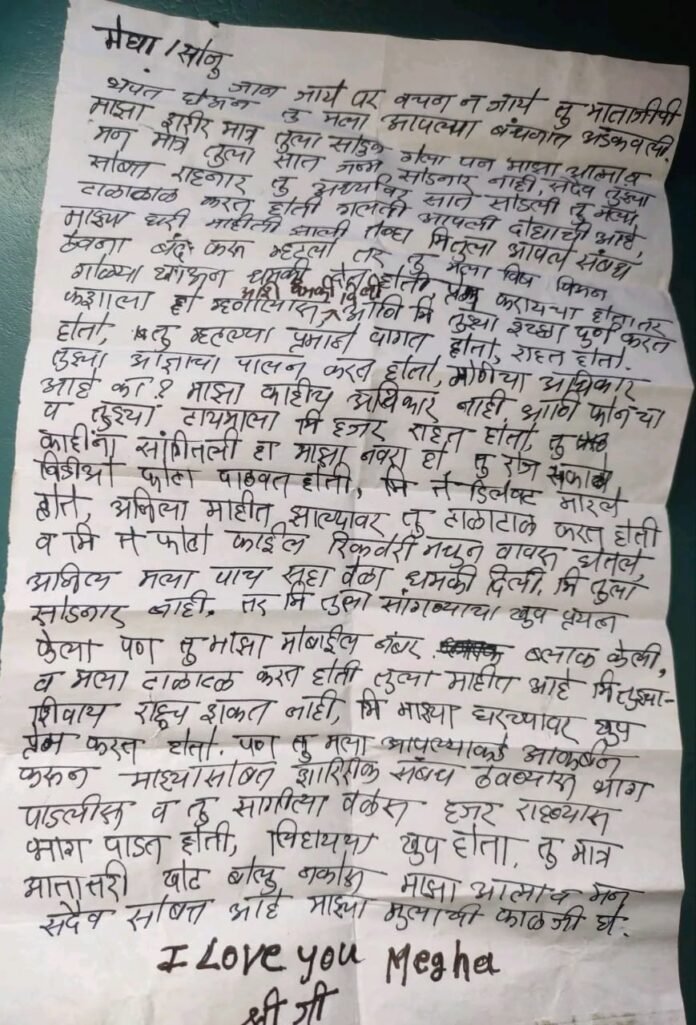 मेघा / सोनु
जान जाये पर वचन न जाये तु माताजीची
शपत घेऊन तु मला आपल्या बंधनात अडकवली.
माझा शरीर मात्र तुला सोडुन गेला पन माझा आत्मा व
मन मात्र तुला सात जन्म सोडनार नाही, सदैव तुझ्या
सोबत राहनार तु अर्ध्यावर साते सोडली तु मला
टाळाटाळ करत होती गलती आपली दोघाची आहे,
माझ्या घरी माहीती झाली तेव्हा मि तुला आपले संबध
ठेवना बंद करू म्हटलो तर तु मला विष पिऊन
गोळ्या खाऊन धमकी देत होती प्रेम करायचा होता तर
अशी धमकी दिली
कशाला हा म्हणालास, आणि मि तुझ्या इच्छा पुर्ण करत
होतो, तु म्हटल्या प्रमाने वागत होतो, राहत होतो.
तुझ्या आज्ञाचा पालन करत होतो, अधिकार
आहे का? माझा काहीच अधिकार नाही आणि फोनचा
प तुझ्या टायमाला मि हजर राहत होतो, तु
काहींना सांगितली हा माझा नवरा हो तु रोज सकाळी
विडीओ फोटो पाठवत होती, मि ते डिलेक्ट मारले
होते, अनिला माहीत झाल्यावर तु टाळाटाळ करत होती
व मि ते फोटो फाईल रिकवरी मधुन वापस घेतले,
अनिल मला पाच सहा वेळा धमकी दिली. मि तुला
सोडनार नाही. तर मि तुला सांगण्याचा खुप प्रयत्न
केला पण तु माझा मोबाईल नंबर ब्लाक केली,
व मला टाळाटळ करत होती तुला माहीत आहे मि तुझा-
शिवाय राहु शकत नाही, मि माझ्या घरच्यावर खुप
प्रेम करत होतो. पण तु मला आपल्याकडे आकर्षन
करून माझ्यासोबत शारिरीक संबध ठेवण्यास भाग
पाडलीस व तु सांगीत्या वेळेस हजर राहण्यास
भाग पाडत होती, लिहायचा खुप होता. तु मात्र
आतातरी खोट बोलु नकोस माझा आत्मा व मन
सदैव सोबत आहे माझ्या मुलाची काळजी घे.
I Love you Megha
श्री जी